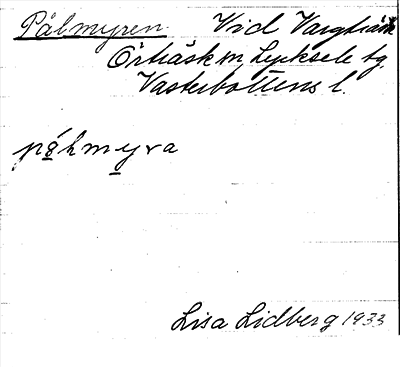 Pålmyren. Vid Vargträsk
Örträsk sn, Lycksele tg.
Västerbottens l.
påhmyra
Lisa Lidberg 1933